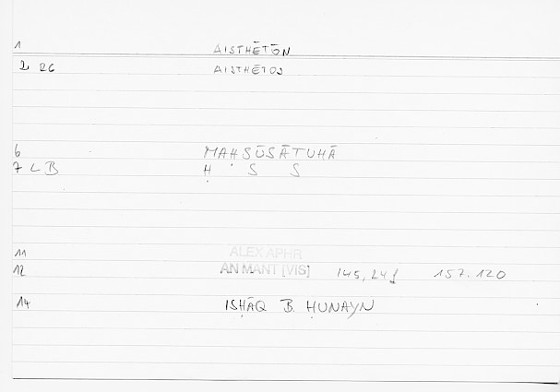 1 AISTHĒTŌN
2 26 AISTHĒTOS
6 MAḤSŪSĀTUHĀ
7 LB Ḥ S S
11 ALEX APHR
12 AN MANT [VIS] 145,24f 157.120
14 ISḤĀQ B ḤUNAYN